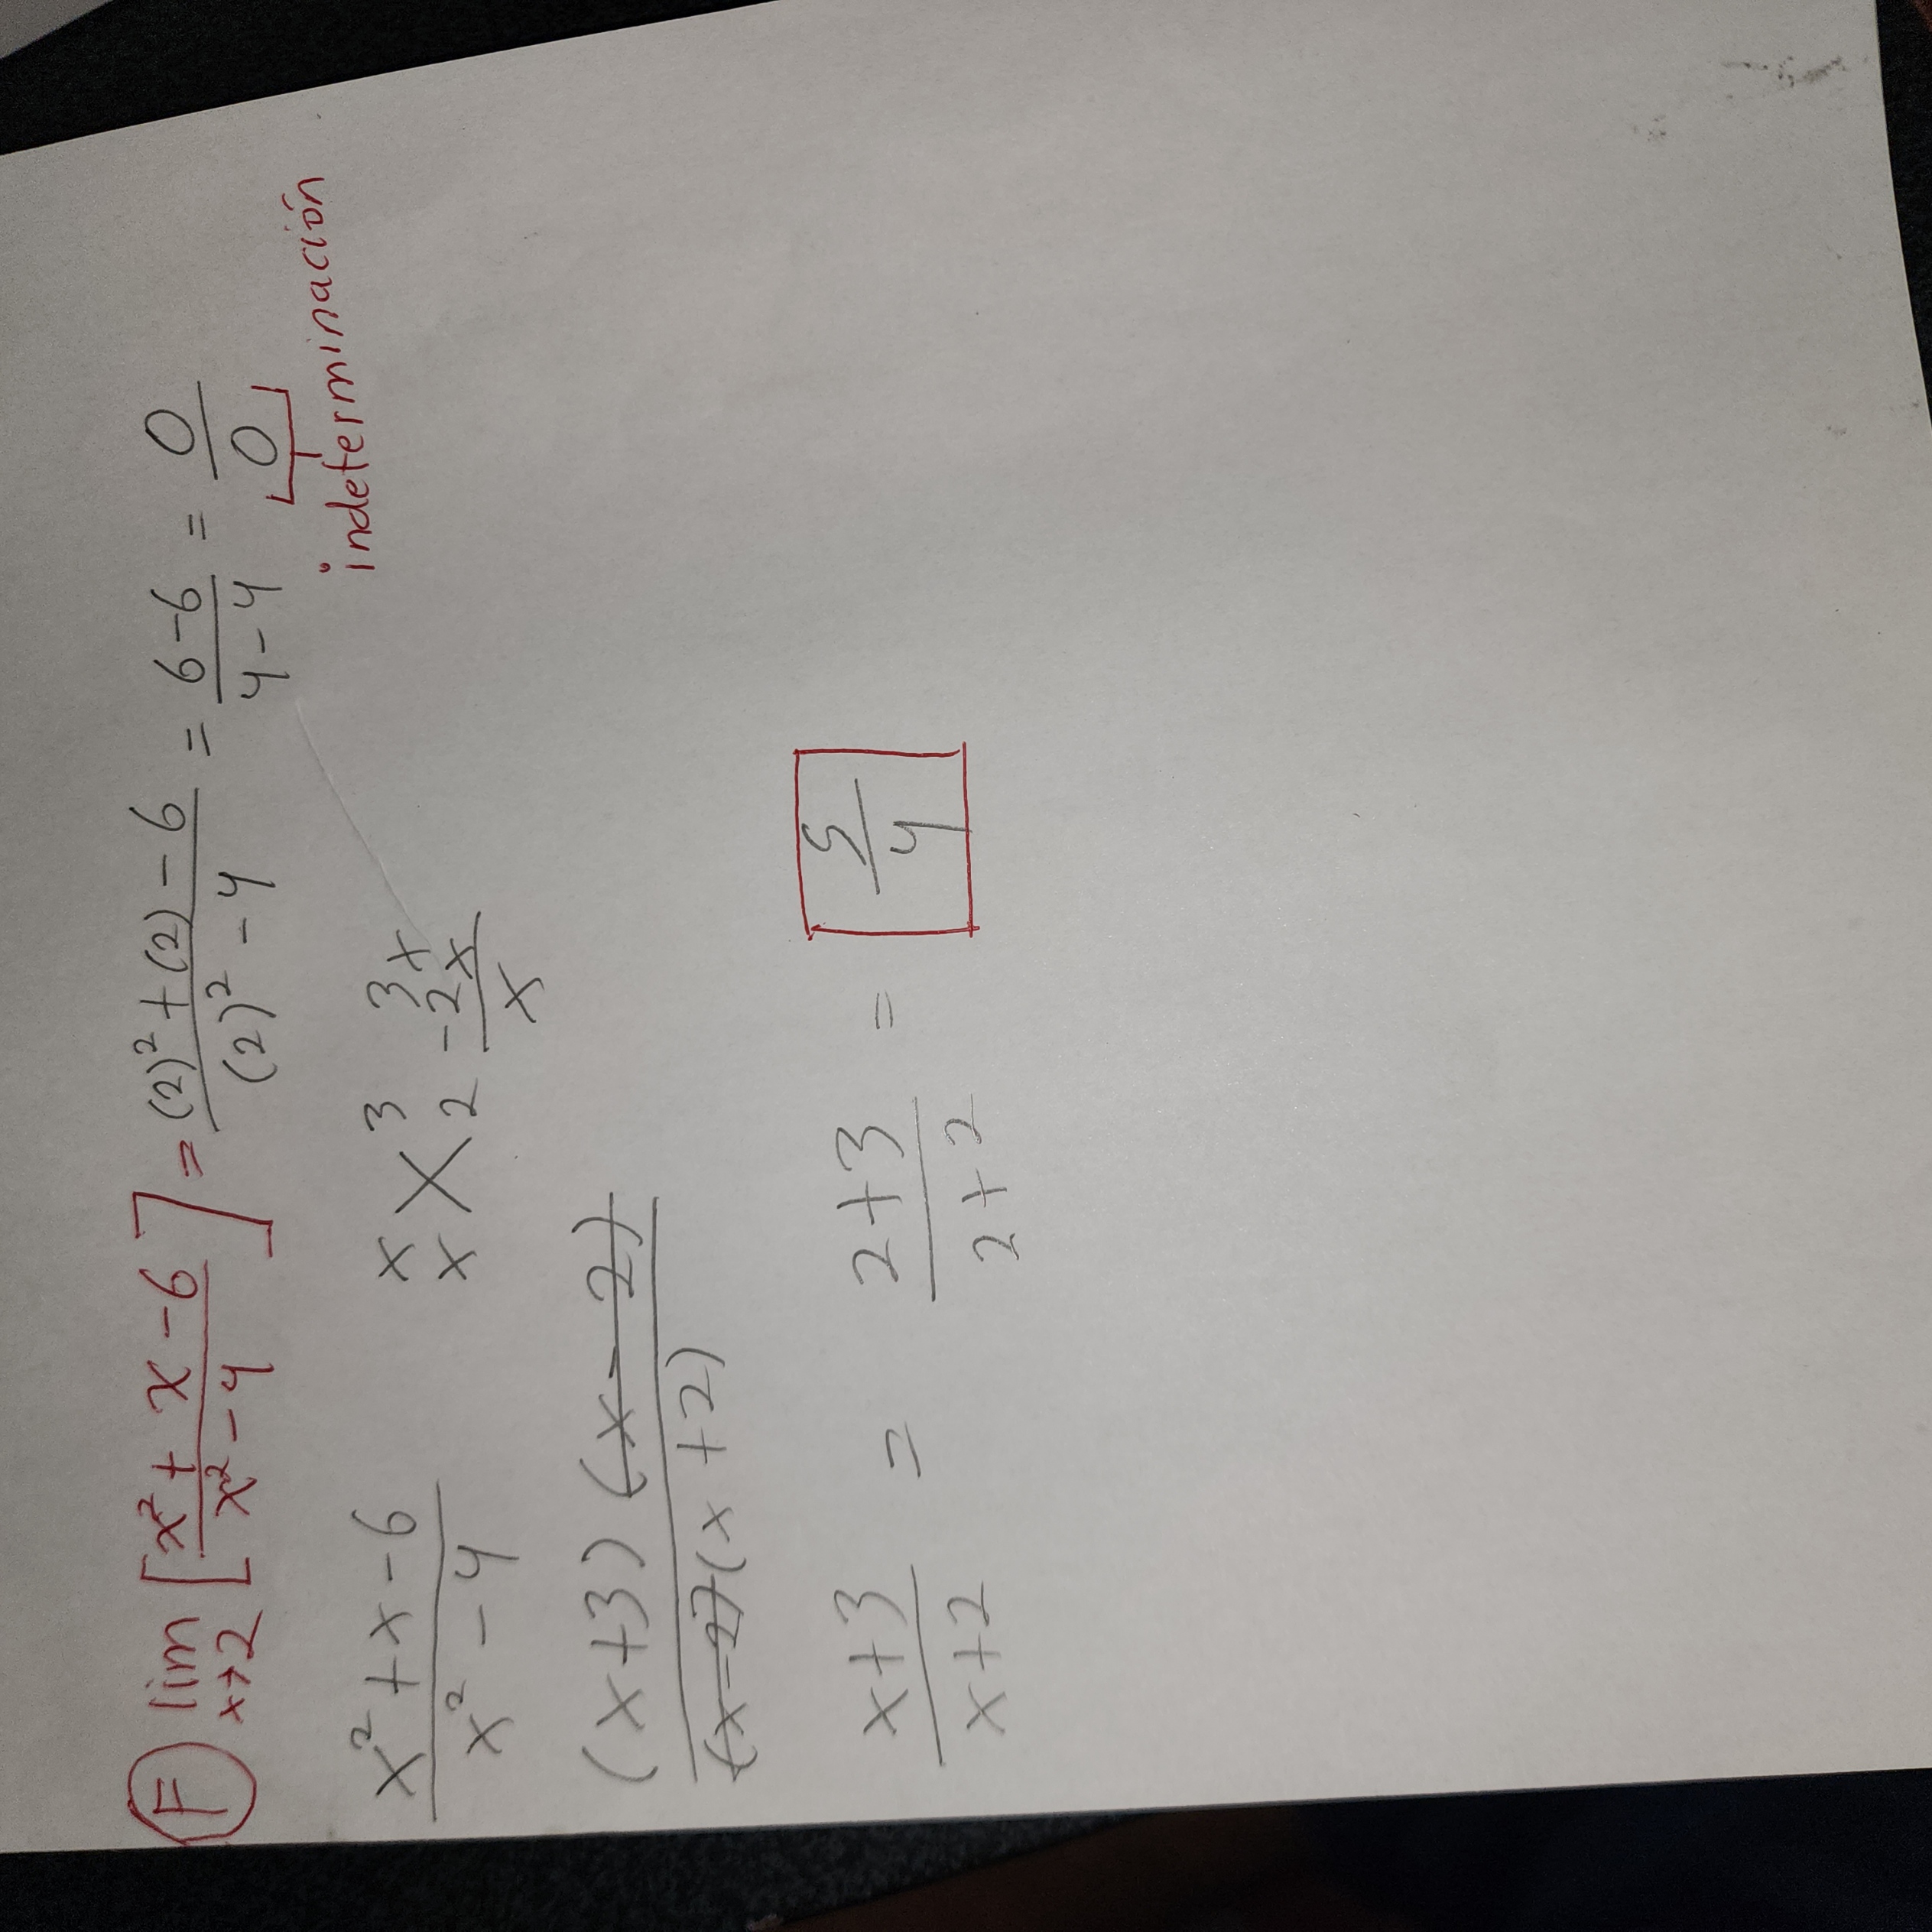 F lim x→2 [x² + x - 6 / x² - 4] = (2)² + (2) - 6 / (2)² - 4 = 6-6 / 4-4 = 0 / 0
indeterminación
x² + x - 6 / x² - 4
x x X 3 2
3x
-2x
x
(x+3) (x - 2) / (x-2)(x+2)
x+3 / x+2 = 2+3 / 2+2 = 5 / 4